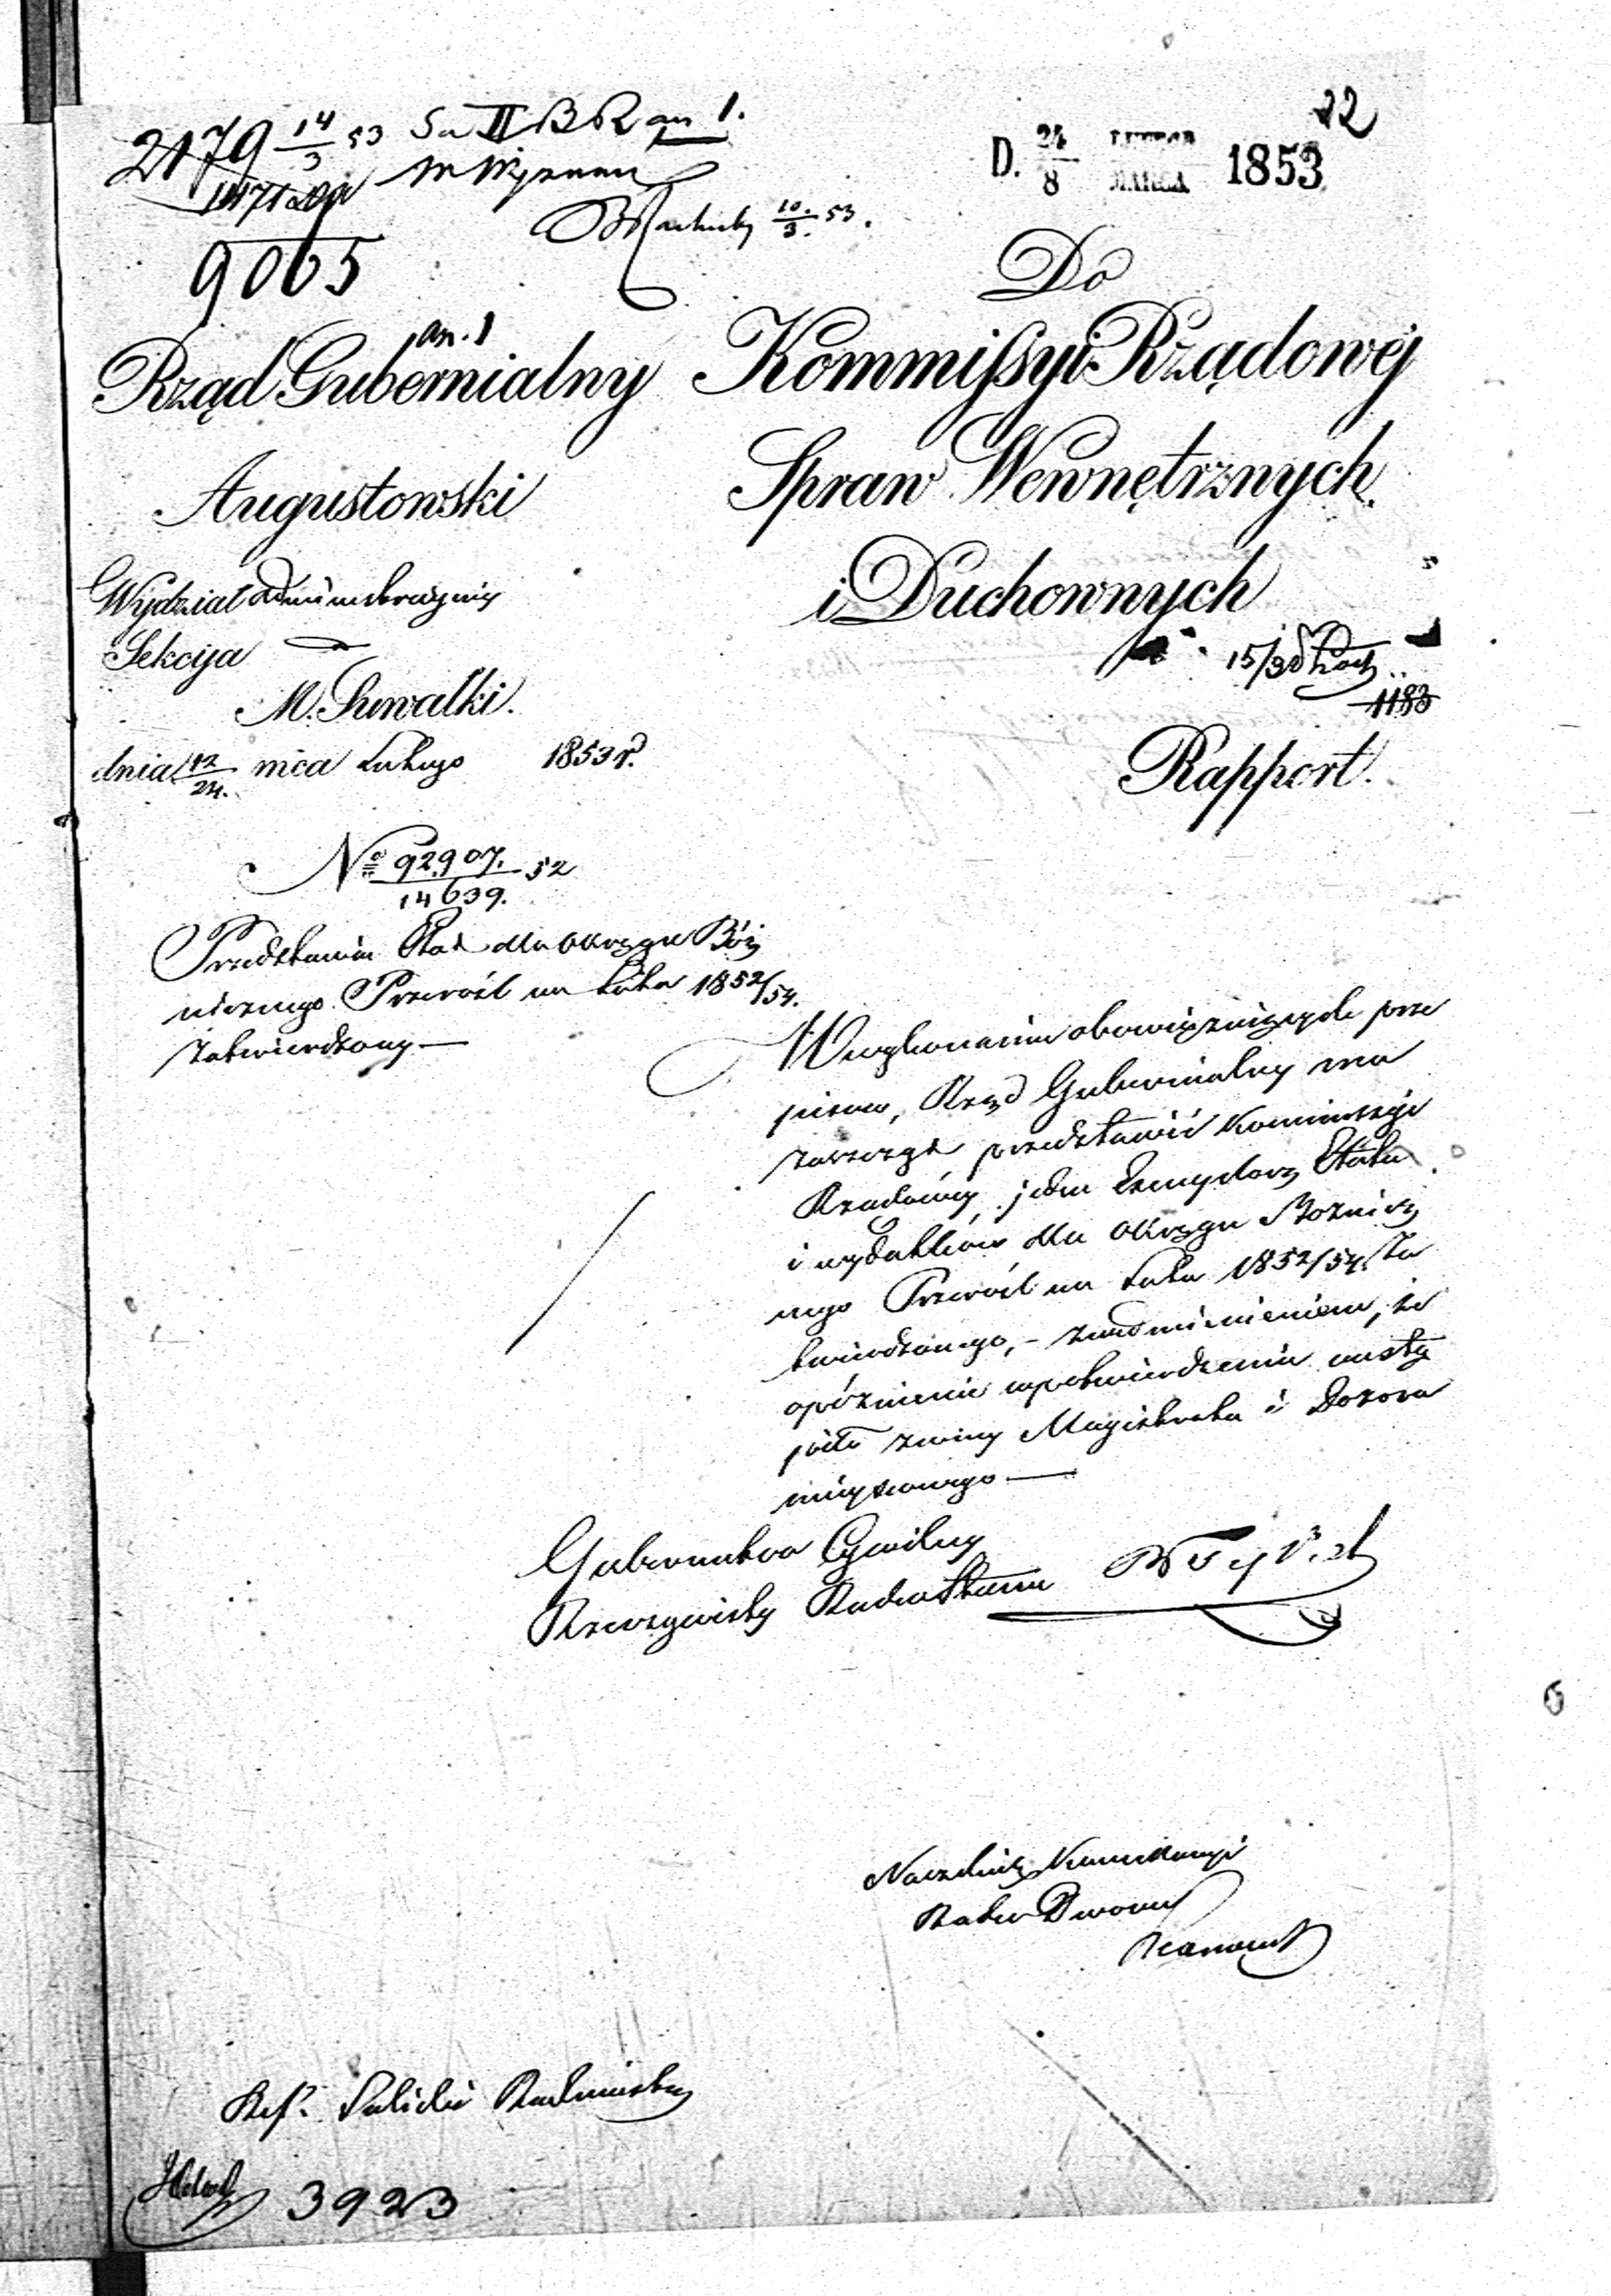 22
2179 14/3 53 S II B R an 1.
W Wyznan
10/3 53.
D. 24/8 LUTEGO MARCA 1853
9065
an. 1
Rząd Gubernialny
Augustowski
Wydział Administracyjny
Sekcyja
M. Suwałki.
dnia 12/24. mca Lutego 1853 r.
No 92,907./14639. 52
Przedstawia Etat dla Okręgu Bóż
niczego Przerośl na lata 1852/54.
zatwierdzony —
Do
Kommissyi Rządowéj
Spraw Wewnętrznych
i Duchownych
15/30
1183
Rapport.
W wykonaniu obowiązujących prze
pisów, Rząd Gubernialny ma
zaszczyt przedstawić Kommissyi
Rządowéj, jeden Exemplarz Etatu
i wydatków dla Okręgu Bożnicz
nego Przerośl na lata 1852/54. za
twierdzonego, – z nadmienieniem, że
opóźnienie w potwierdzeniu nastą
piło z winy Magistratu i Dozoru
miejscowego —
Gubernator Cywilny
Rzeczywisty Radca Stanu
Naczelnik Kancellaryi
Radca Dworu
Ref.
3923